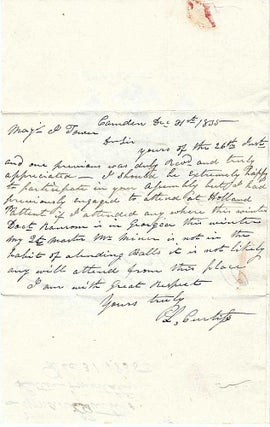 Camden Dec 31st 1835
Maj'r J Tower
Dr Sir
yours of the 26th Inst.
and one previous was duly Recd and truly
appreciated — I should be extremely happy
to participate in your Assembly but I had
previously engaged to attend at Holland
Pattent if I attended any where this winter
Doct Ransom is in Georgia this winter
my 2d master Mr Miner is not in the
habit of attending Balls it is not likely
any will attend from this place
I am with Great Respect
Yours truly
Curtiss